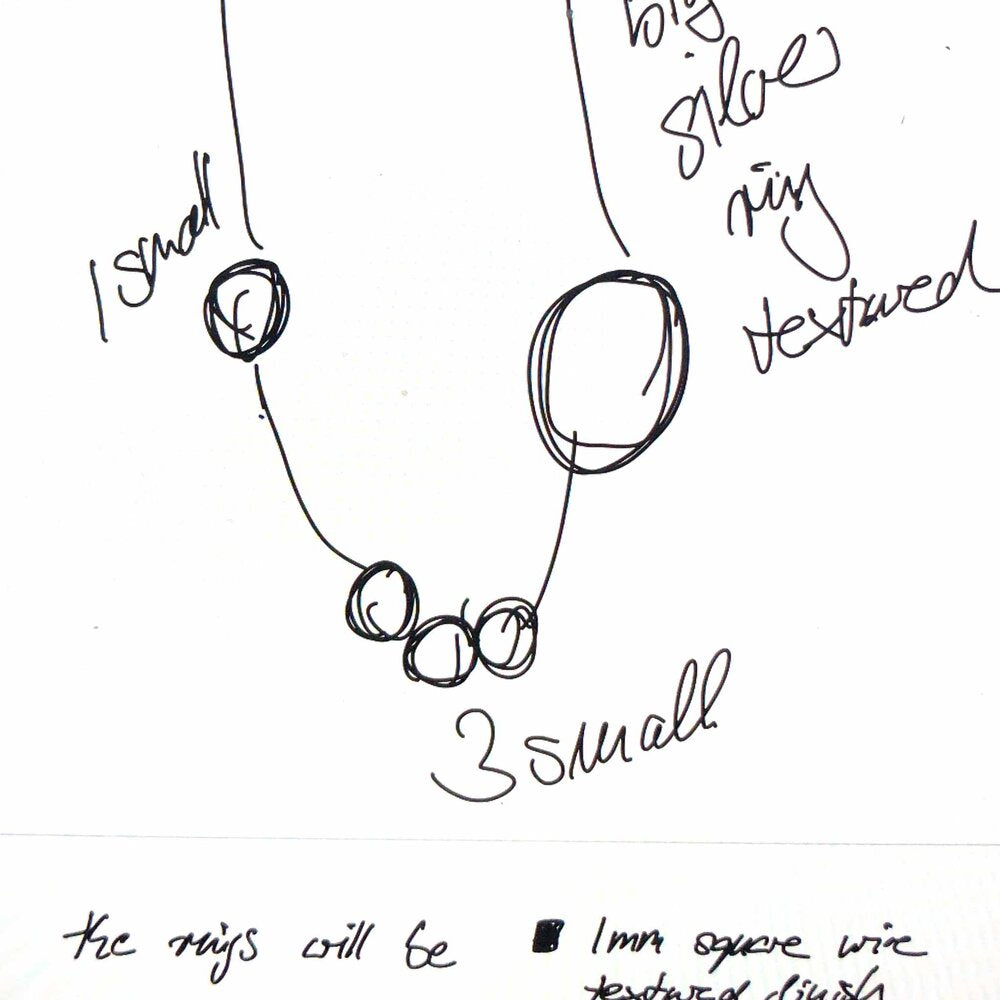 big
silver
ring
textured
1 small
3 small
the rings will be
1mm square wire
textured finish